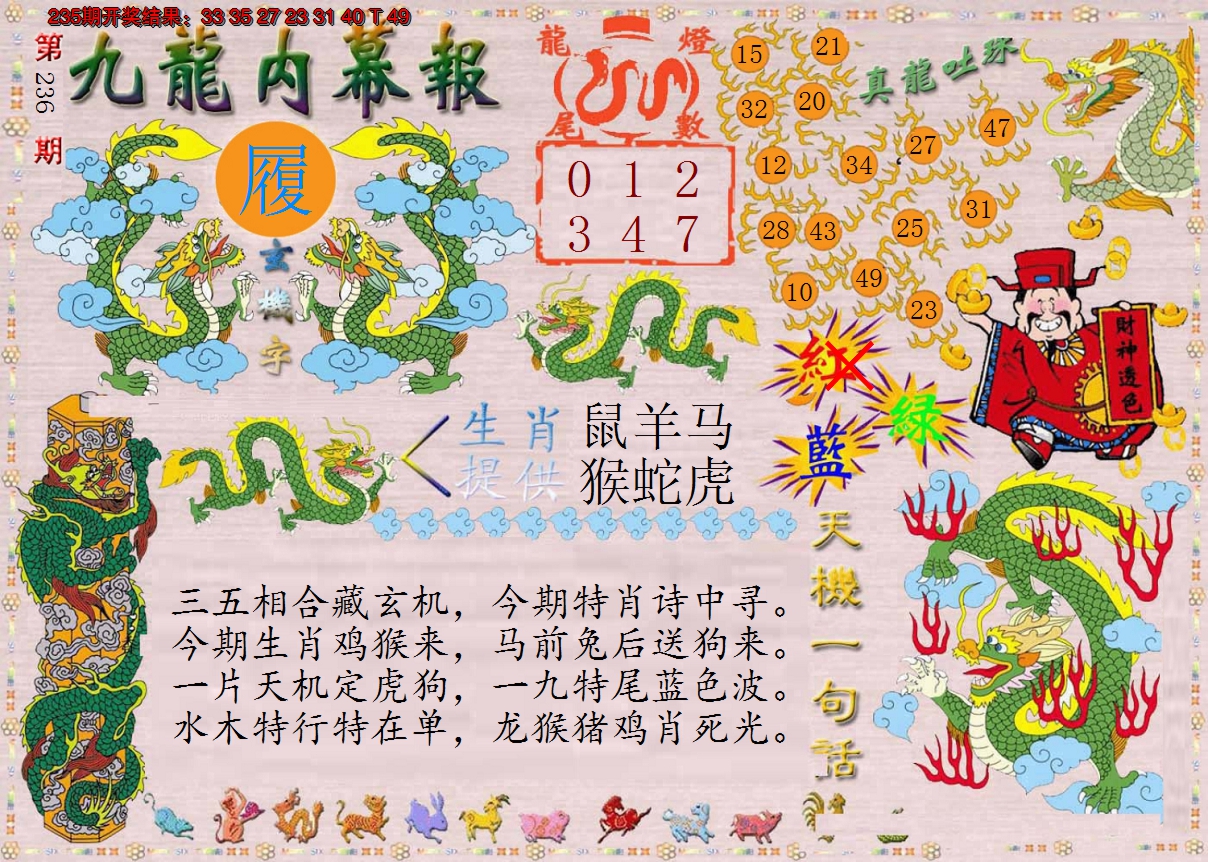 235期开奖结果：33 35 27 23 31 40 T 49
第236期
九龍内幕報
履
玄機字
龍燈
尾數
0 1 2
3 4 7
真龍吐珠
15 21
32 20
12 34 27 47
28 43 25 31
10 49 23
財神透色
紅
綠
藍
生肖
提供
鼠羊马
猴蛇虎
天機一句话
三五相合藏玄机，今期特肖诗中寻。
今期生肖鸡猴来，马前兔后送狗来。
一片天机定虎狗，一九特尾蓝色波。
水木特行特在单，龙猴猪鸡肖死光。